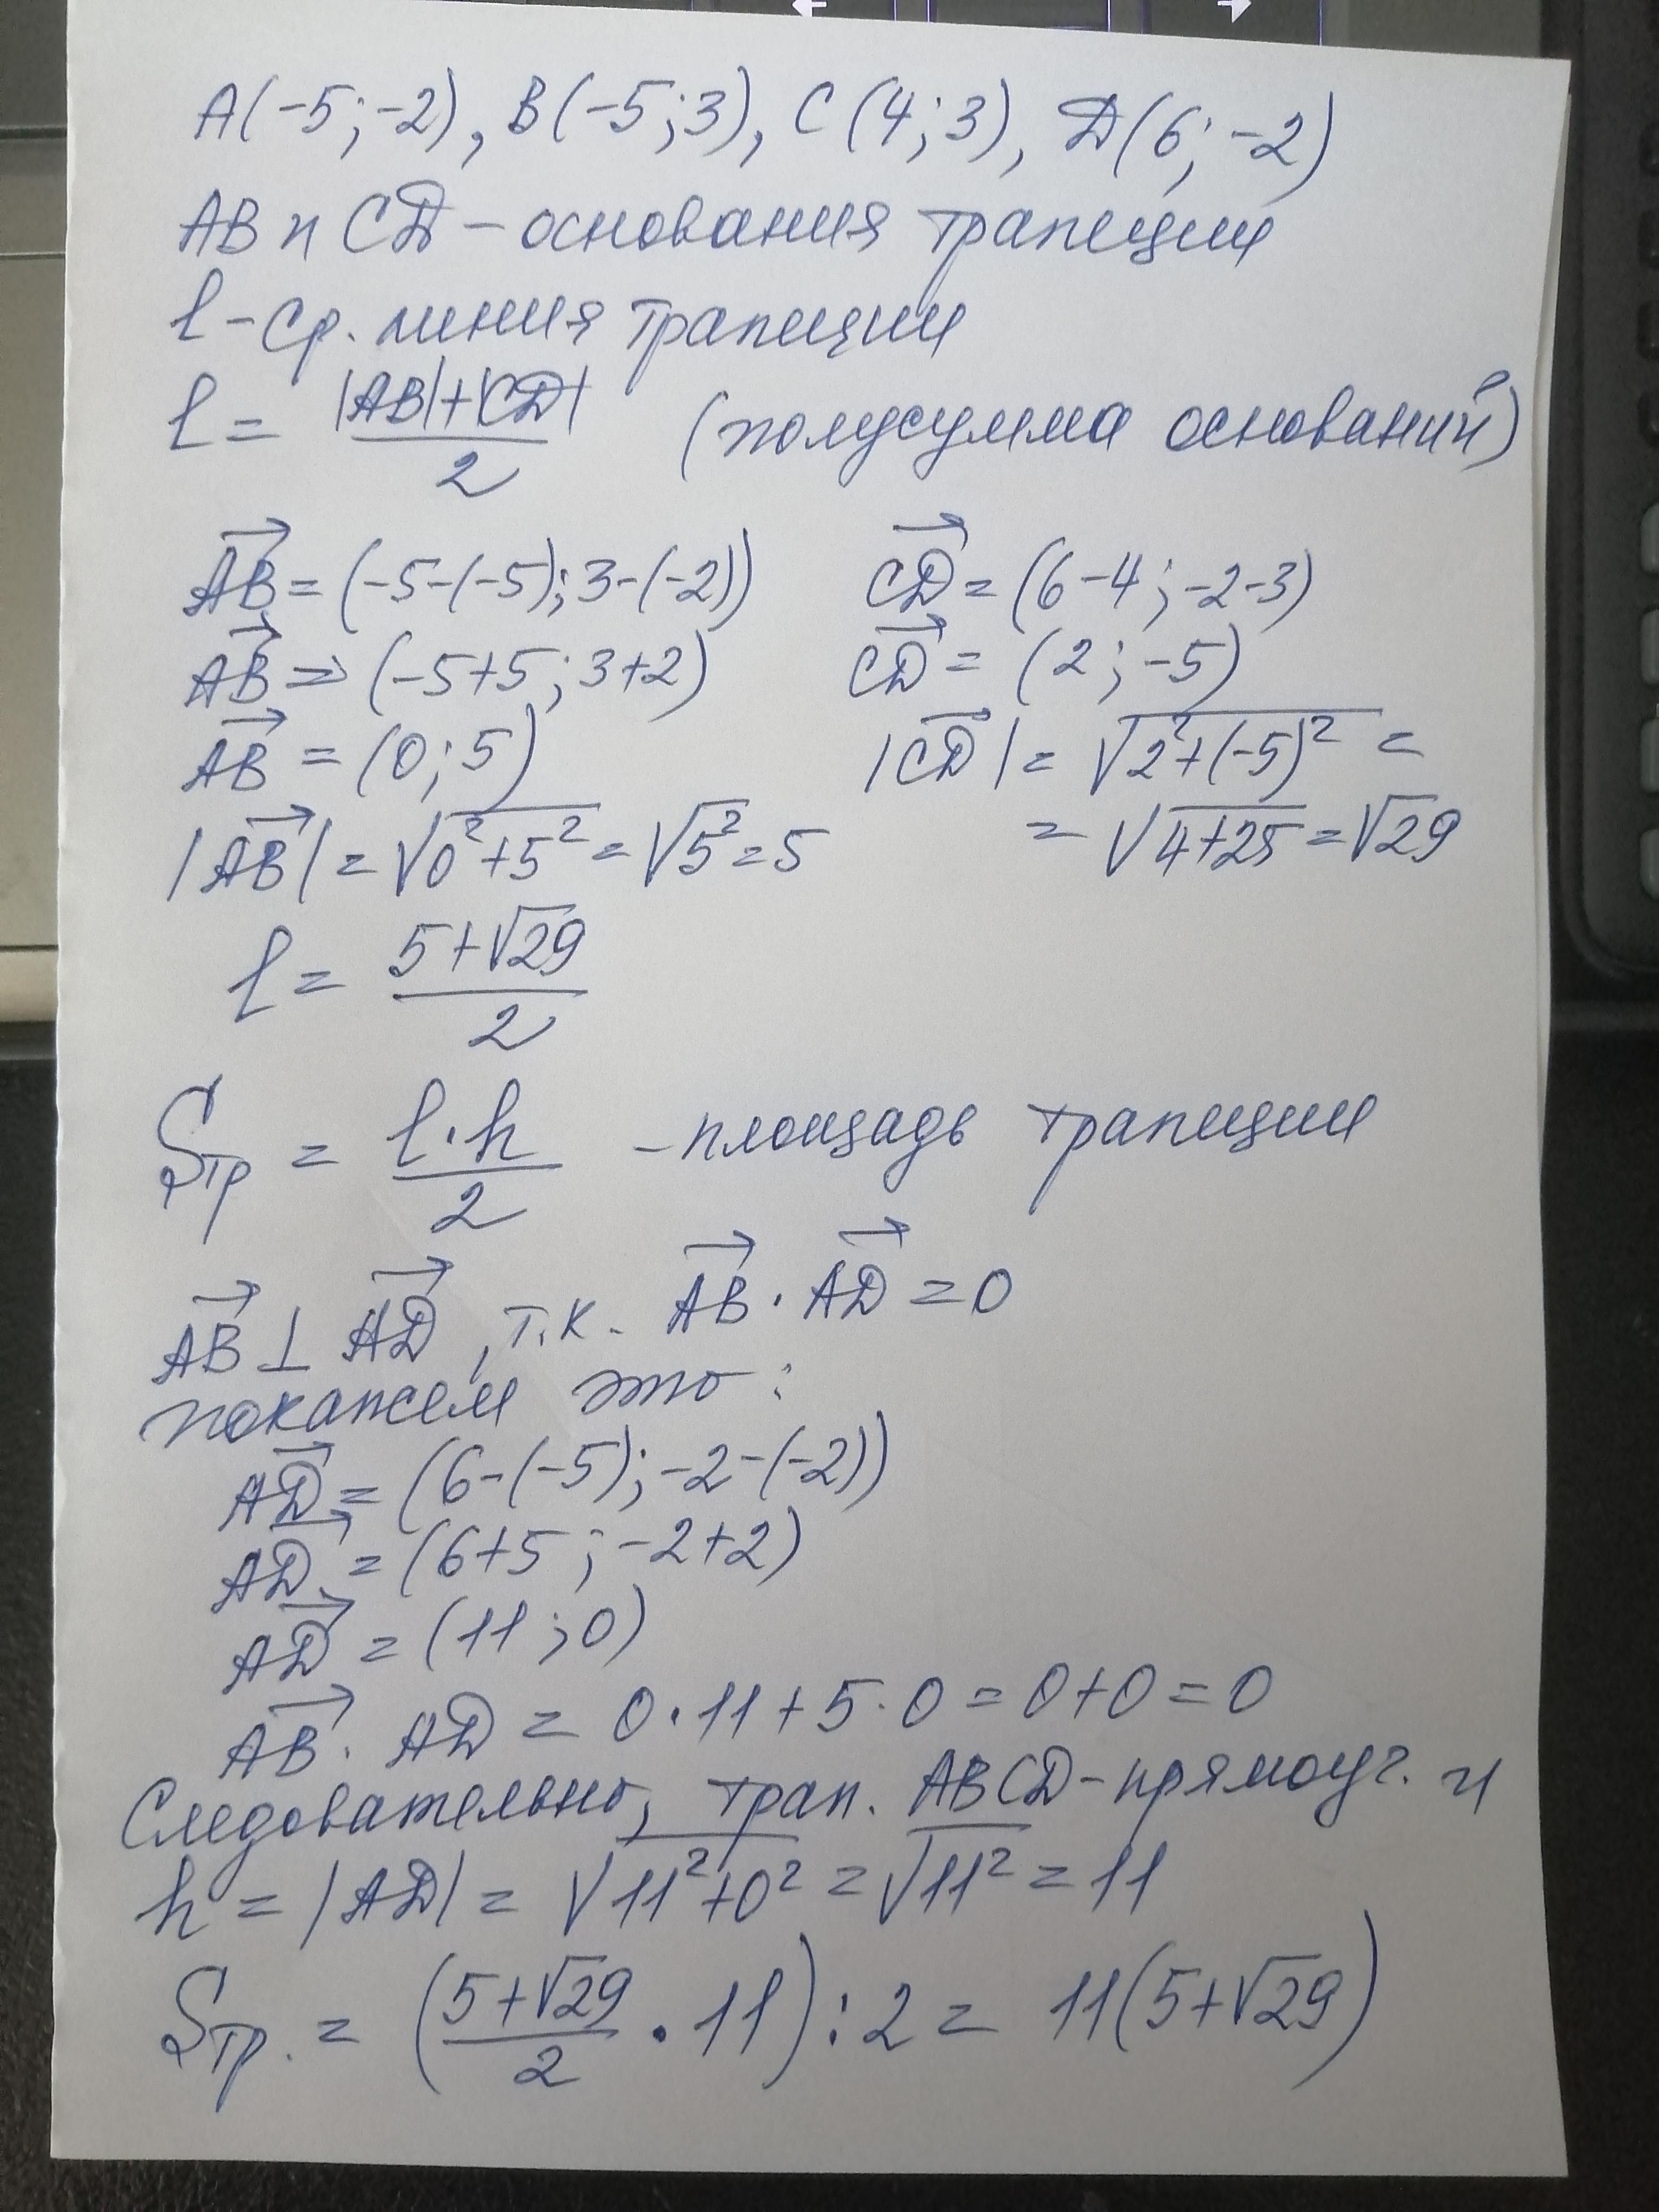 A(-5;-2), B(-5;3), C(4;3), D(6;-2)
AB и CD - основания трапеции
l - ср. линия трапеции
l = (|AB|+|CD|)/2 (полусумма оснований)
AB = (-5-(-5); 3-(-2)) CD = (6-4; -2-3)
AB = (-5+5; 3+2) CD = (2; -5)
AB = (0; 5) |CD| = √(2²+(-5)²) =
|AB| = √(0²+5²) = √5² = 5 = √(4+25) = √29
l = (5+√29)/2
Sтр = (l·h)/2 - площадь трапеции
AB ⊥ AD, т.к. AB · AD = 0
покажем это:
AD = (6-(-5); -2-(-2))
AD = (6+5; -2+2)
AD = (11; 0)
AB · AD = 0·11+5·0 = 0+0 = 0
Следовательно, трап. ABCD - прямоуг. и
h = |AD| = √(11²+0²) = √11² = 11
Sтр. = ((5+√29)/2 · 11) : 2 = 11(5+√29)